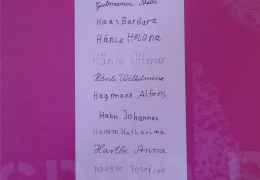 Gutmann
Haas Barbara
Hänle Helena
Hänle Ottmar
Hänle Wilhelmine
Hagmann Alfons
Hahn Johannes
Hamm Katharina
Hartle Anna
Josefine